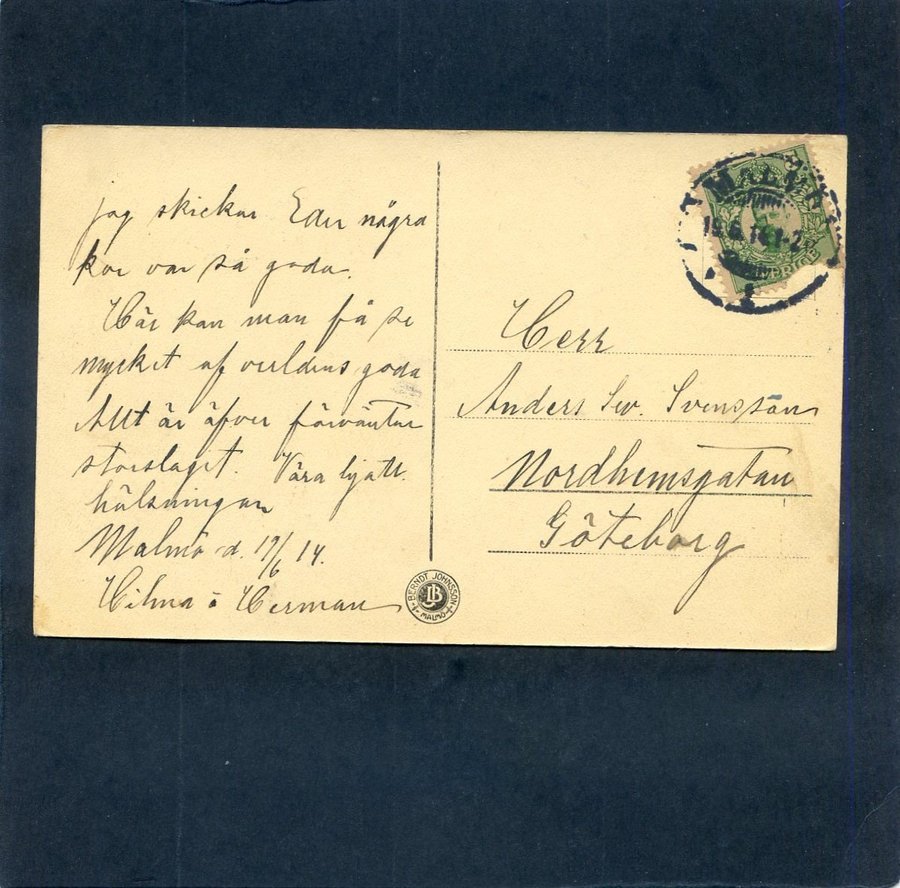 jag skickar Eder några
kor var så goda.
Här kan man få se
mycket af verldens goda
Allt är äfver förväntan
storslaget. Våra hjärtl.
hälsningar
Malmö d. 19/6 14.
Hilma o Herman
BERNDT JOHNSSON
JB
MALMÖ
MALMÖ
19.6.14 1-2
1
SVERIGE
Herr
Anders Sw. Svensson
Nordhemsgatan
Göteborg